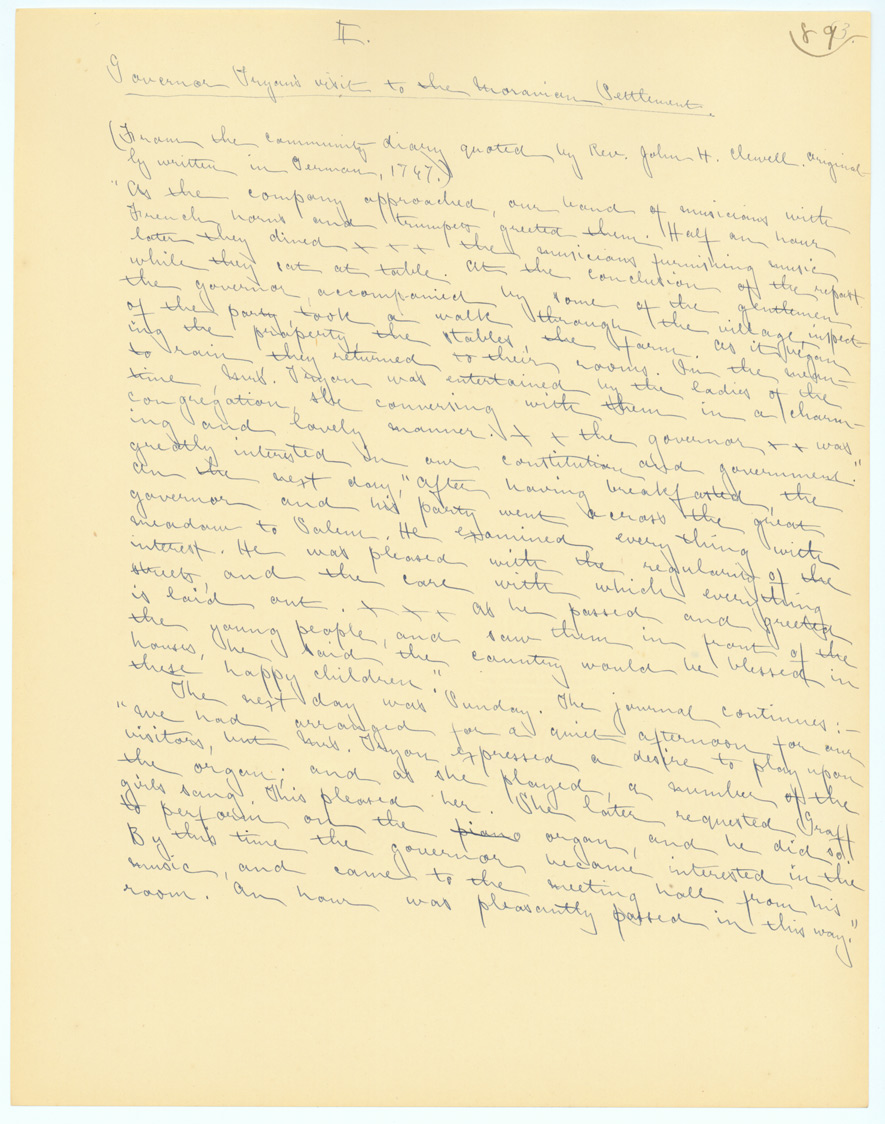 II.
893.
Governor Tryon's visit to the Moravian Settlement.
(From the community diary quoted by Rev. John H. Clewell. Original-
ly written in German, 1767.)
"As the company approached, our band of musicians with
French horns and trumpets greeted them. Half an hour
later they dined x x x the musicians furnishing music
while they sat at table. At the conclusion of the repast
the governor, accompanied by some of the gentlemen
of the party, took a walk through the village, inspect-
ing the property, the stables, the farm. As it began
to rain they returned to their rooms. In the mean-
time, Mrs. Tryon was entertained by the ladies of the
congregation, she conversing with them in a charm-
ing and lovely manner. x x the governor x x was
greatly interested in our constitution and government."
On the next day, "After having breakfasted, the
governor and his party went across the great
meadow to Salem. He examined every thing with
interest. He was pleased with the regularity of the
streets, and the care with which everything
is laid out. x x x As he passed and greeted
the young people, and saw them in front of the
houses, he said the country would be blessed in
these happy children".
The next day was Sunday. The journal continues:-
"We had arranged for a quiet afternoon for our
visitors, but Mrs. Tryon expressed a desire to play upon
the organ; and as she played, a number of the
girls sang. This pleased her. She later requested Graff
to perform on the piano organ, and he did so.
By this time the governor became interested in the
music, and came to the meeting hall from his
room. An hour was pleasantly passed in this way."